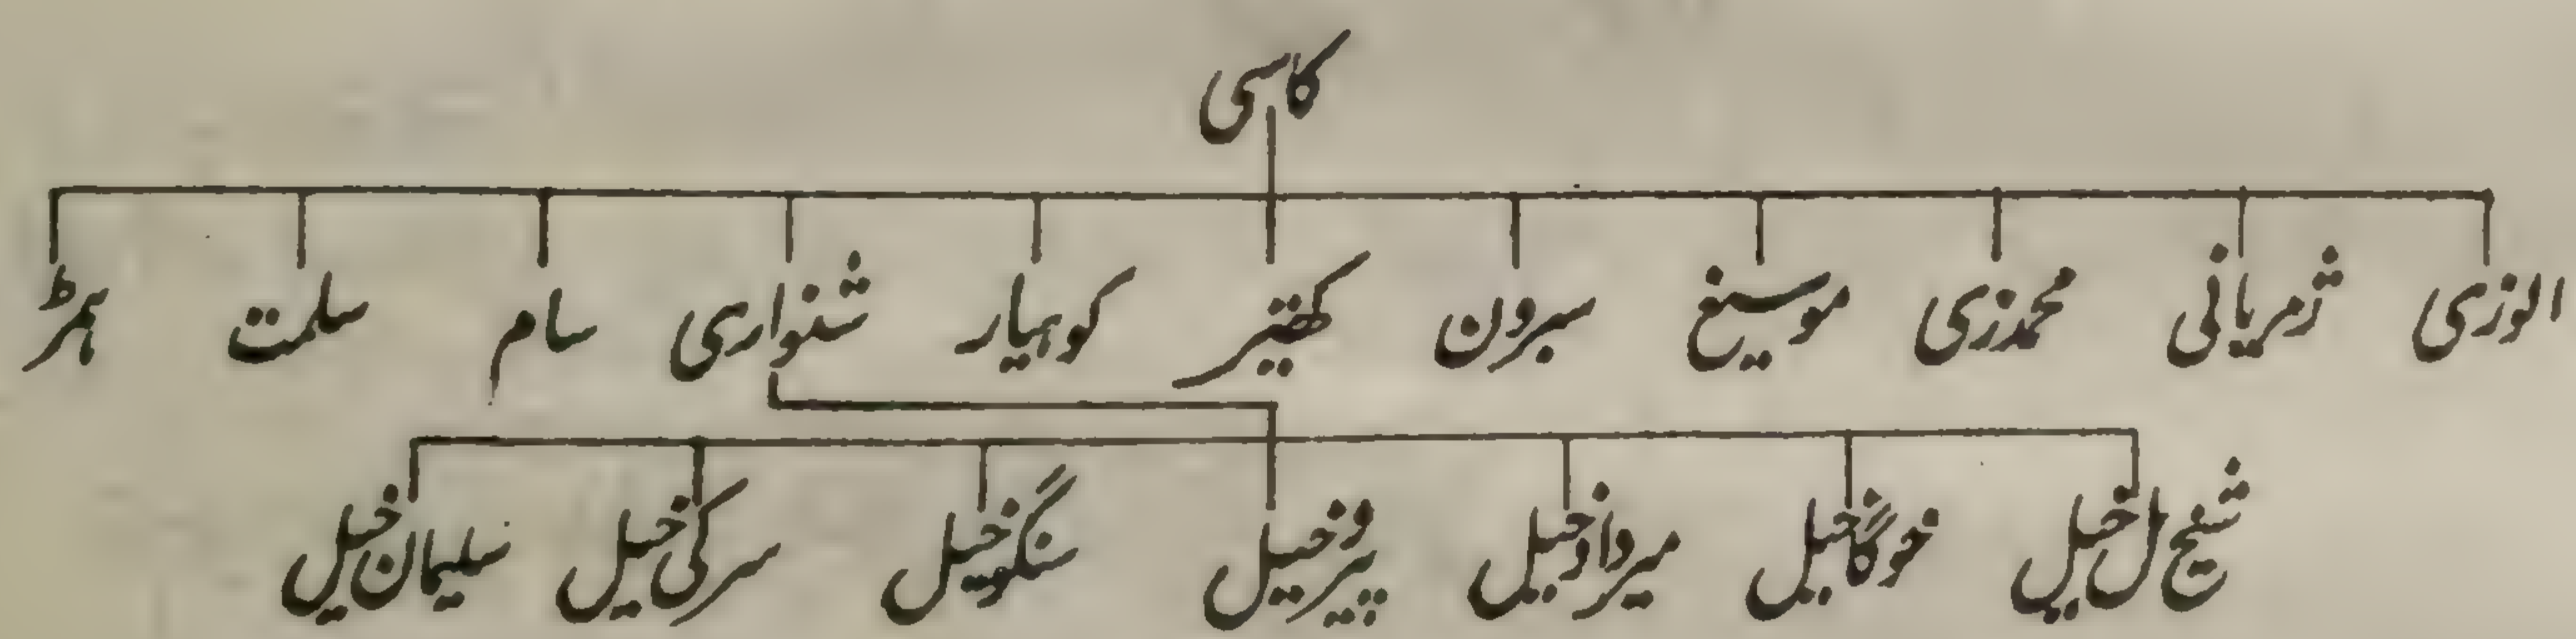 کاسی
الوزی ژمریانی محمدزی موسیغ سبرون کھتیر کوہیار شنواری سام سلمت ہمڑ
خوگاخیل میردادخیل پیروخیل سنگوخیل سرکی خیل سلیمان خیل